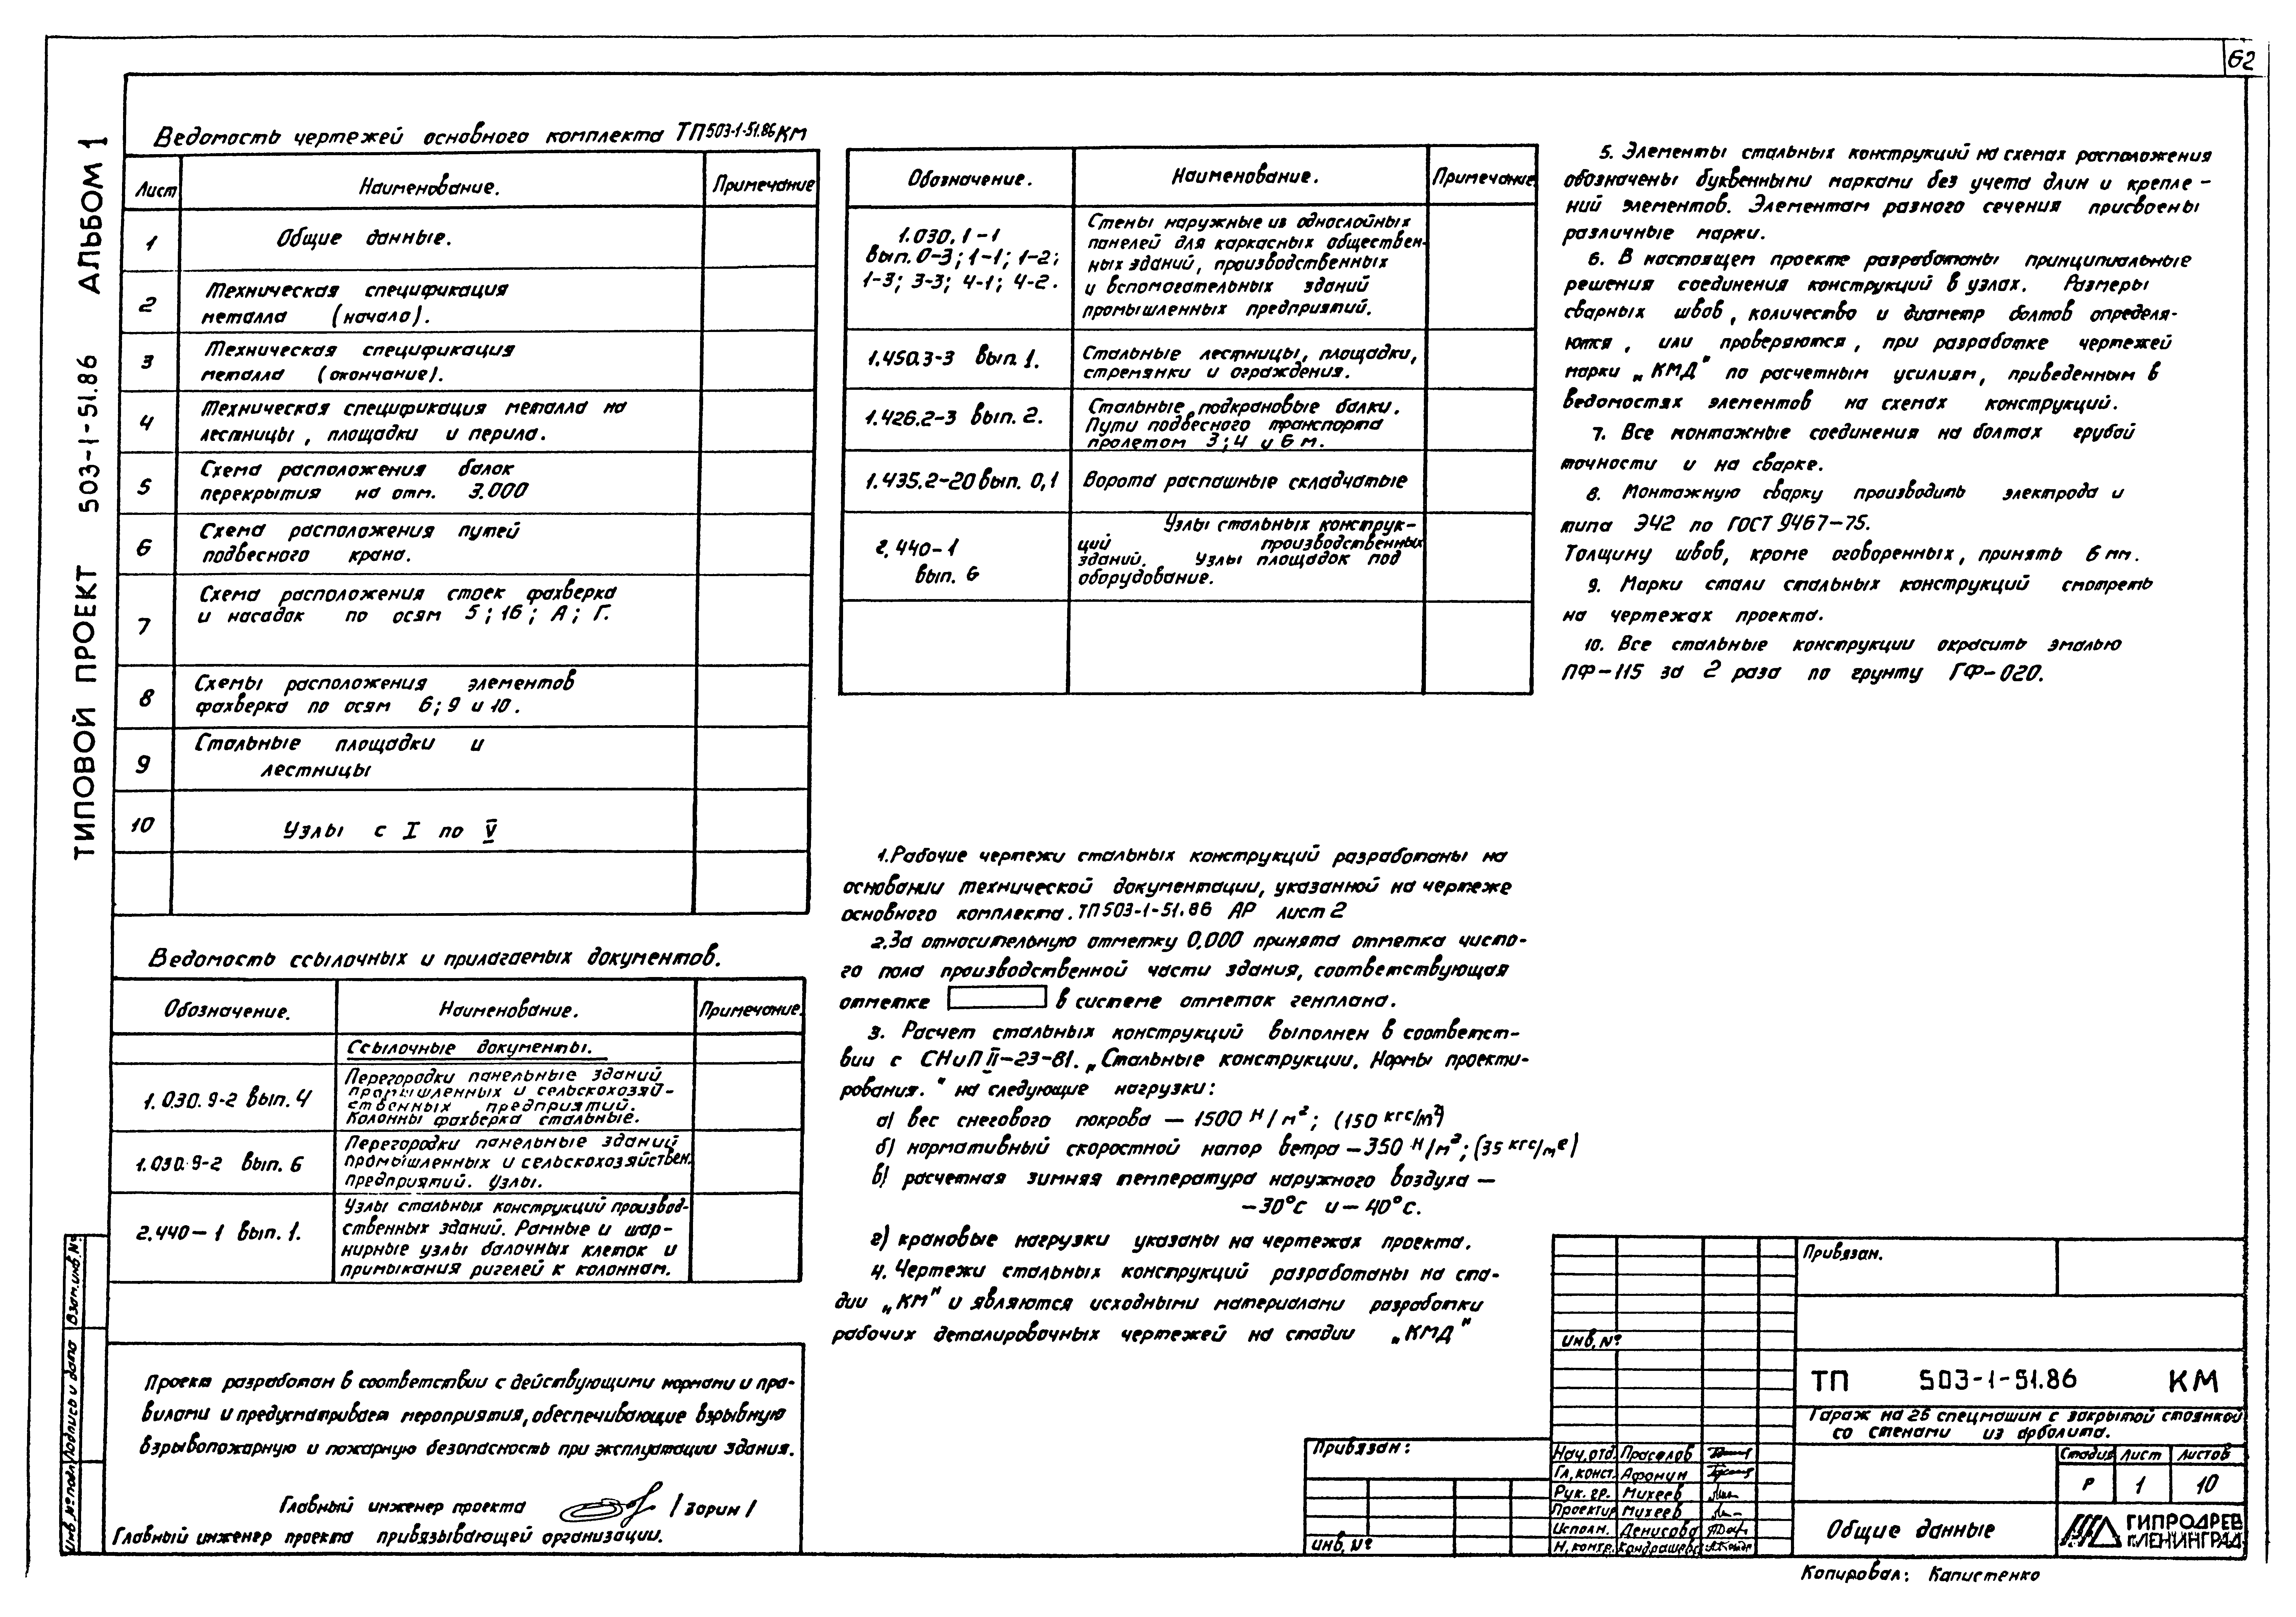 62
ТИПОВОЙ ПРОЕКТ 503-1-51.86 АЛЬБОМ 1
Ведомость чертежей основного комплекта ТП 503-1-51.86 КМ
Лист Наименование. Примечание
1 Общие данные.
2 Техническая спецификация
металла (начало).
3 Техническая спецификация
металла (окончание).
4 Техническая спецификация металла на
лестницы, площадки и перила.
5 Схема расположения балок
перекрытия на отм. 3.000
6 Схема расположения путей
подвесного крана.
7 Схема расположения стоек фахверка
и насадок по осям 5; 16; А; Г.
8 Схемы расположения элементов
фахверка по осям 6; 9 и 10.
9 Стальные площадки и
лестницы
10 Узлы с I по V
Ведомость ссылочных и прилагаемых документов.
Обозначение. Наименование. Примечание.
Ссылочные документы.
1.030.9-2 вып. 4 Перегородки панельные зданий
промышленных и сельскохозяй-
ственных предприятий.
Колонны фахверка стальные.
1.030.9-2 вып. 6 Перегородки панельные зданий
промышленных и сельскохозяйствен.
предприятий. Узлы.
2.440-1 вып. 1. Узлы стальных конструкций производ-
ственных зданий. Рамные и шар-
нирные узлы балочных клеток и
примыкания ригелей к колоннам.
Проект разработан в соответствии с действующими нормами и пра-
вилами и предусматривает мероприятия, обеспечивающие взрывную
взрывопожарную и пожарную безопасность при эксплуатации здания.
Главный инженер проекта /Зорин/
Главный инженер проекта привязывающей организации.
Инв.№ подл. Подпись и дата Взам.инв.№
Обозначение. Наименование. Примечание.
1.030.1-1
вып. 0-3; 1-1; 1-2;
1-3; 3-3; 4-1; 4-2.
Стены наружные из однослойных
панелей для каркасных обществен-
ных зданий, производственных
и вспомогательных зданий
промышленных предприятий.
1.450.3-3 вып. 1. Стальные лестницы, площадки,
стремянки и ограждения.
1.426.2-3 вып. 2. Стальные подкрановые балки.
Пути подвесного транспорта
пролетом 3; 4 и 6 м.
1.435.2-20 вып. 0,1 Ворота распашные складчатые
2.440-1
вып. 6
Узлы стальных конструк-
ций производственных
зданий. Узлы площадок под
оборудование.
1. Рабочие чертежи стальных конструкций разработаны на
основании технической документации, указанной на чертеже
основного комплекта. ТП 503-1-51.86 АР лист 2
2. За относительную отметку 0,000 принята отметка чисто-
го пола производственной части здания, соответствующая
отметке в системе отметок генплана.
3. Расчет стальных конструкций выполнен в соответст-
вии с СНиП II-23-81. „Стальные конструкции. Нормы проекти-
рования." на следующие нагрузки:
а) вес снегового покрова — 1500 Н/м²; (150 кгс/м²)
б) нормативный скоростной напор ветра — 350 Н/м²; (35 кгс/м²)
в) расчетная зимняя температура наружного воздуха —
-30°с и -40°с.
г) крановые нагрузки указаны на чертежах проекта.
4. Чертежи стальных конструкций разработаны на ста-
дии „КМ" и являются исходными материалами разработки
рабочих деталировочных чертежей на стадии „КМД"
5. Элементы стальных конструкций на схемах расположения
обозначены буквенными марками без учета длин и крепле-
ний элементов. Элементам разного сечения присвоены
различные марки.
6. В настоящем проекте разработаны принципиальные
решения соединения конструкций в узлах. Размеры
сварных швов, количество и диаметр болтов определя-
ются, или проверяются, при разработке чертежей
марки „КМД" по расчетным усилиям, приведенным в
ведомостях элементов на схемах конструкций.
7. Все монтажные соединения на болтах грубой
точности и на сварке.
8. Монтажную сварку производить электрода и
типа Э42 по ГОСТ 9467-75.
Толщину швов, кроме оговоренных, принять 6 мм.
9. Марки стали стальных конструкций смотреть
на чертежах проекта.
10. Все стальные конструкции окрасить эмалью
ПФ-115 за 2 раза по грунту ГФ-020.
Привязан:
Инв. №
Привязан.
Инв. №
ТП 503-1-51.86 КМ
Гараж на 25 спецмашин с закрытой стоянкой
со стенами из арболита.
Стадия Лист Листов
Р 1 10
Нач. отд. Проселов
Гл. конст. Афонин
Рук. гр. Михеев
Проектир Михеев
Исполн. Денисова
Н. контр. Кондрашева
Общие данные
ГИПРОДРЕВ
г. ЛЕНИНГРАД
Копировал: Капистенко